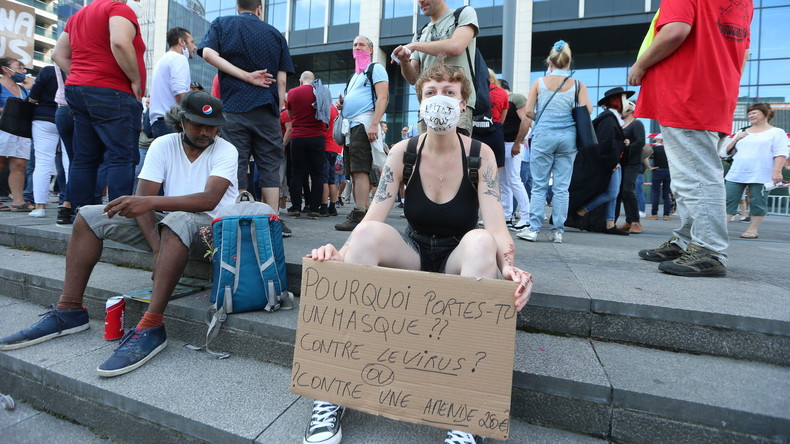 POURQUOI PORTES-TU
UN MASQUE??
CONTRE LE VIRUS?
OU
?CONTRE UNE AMENDE 250€